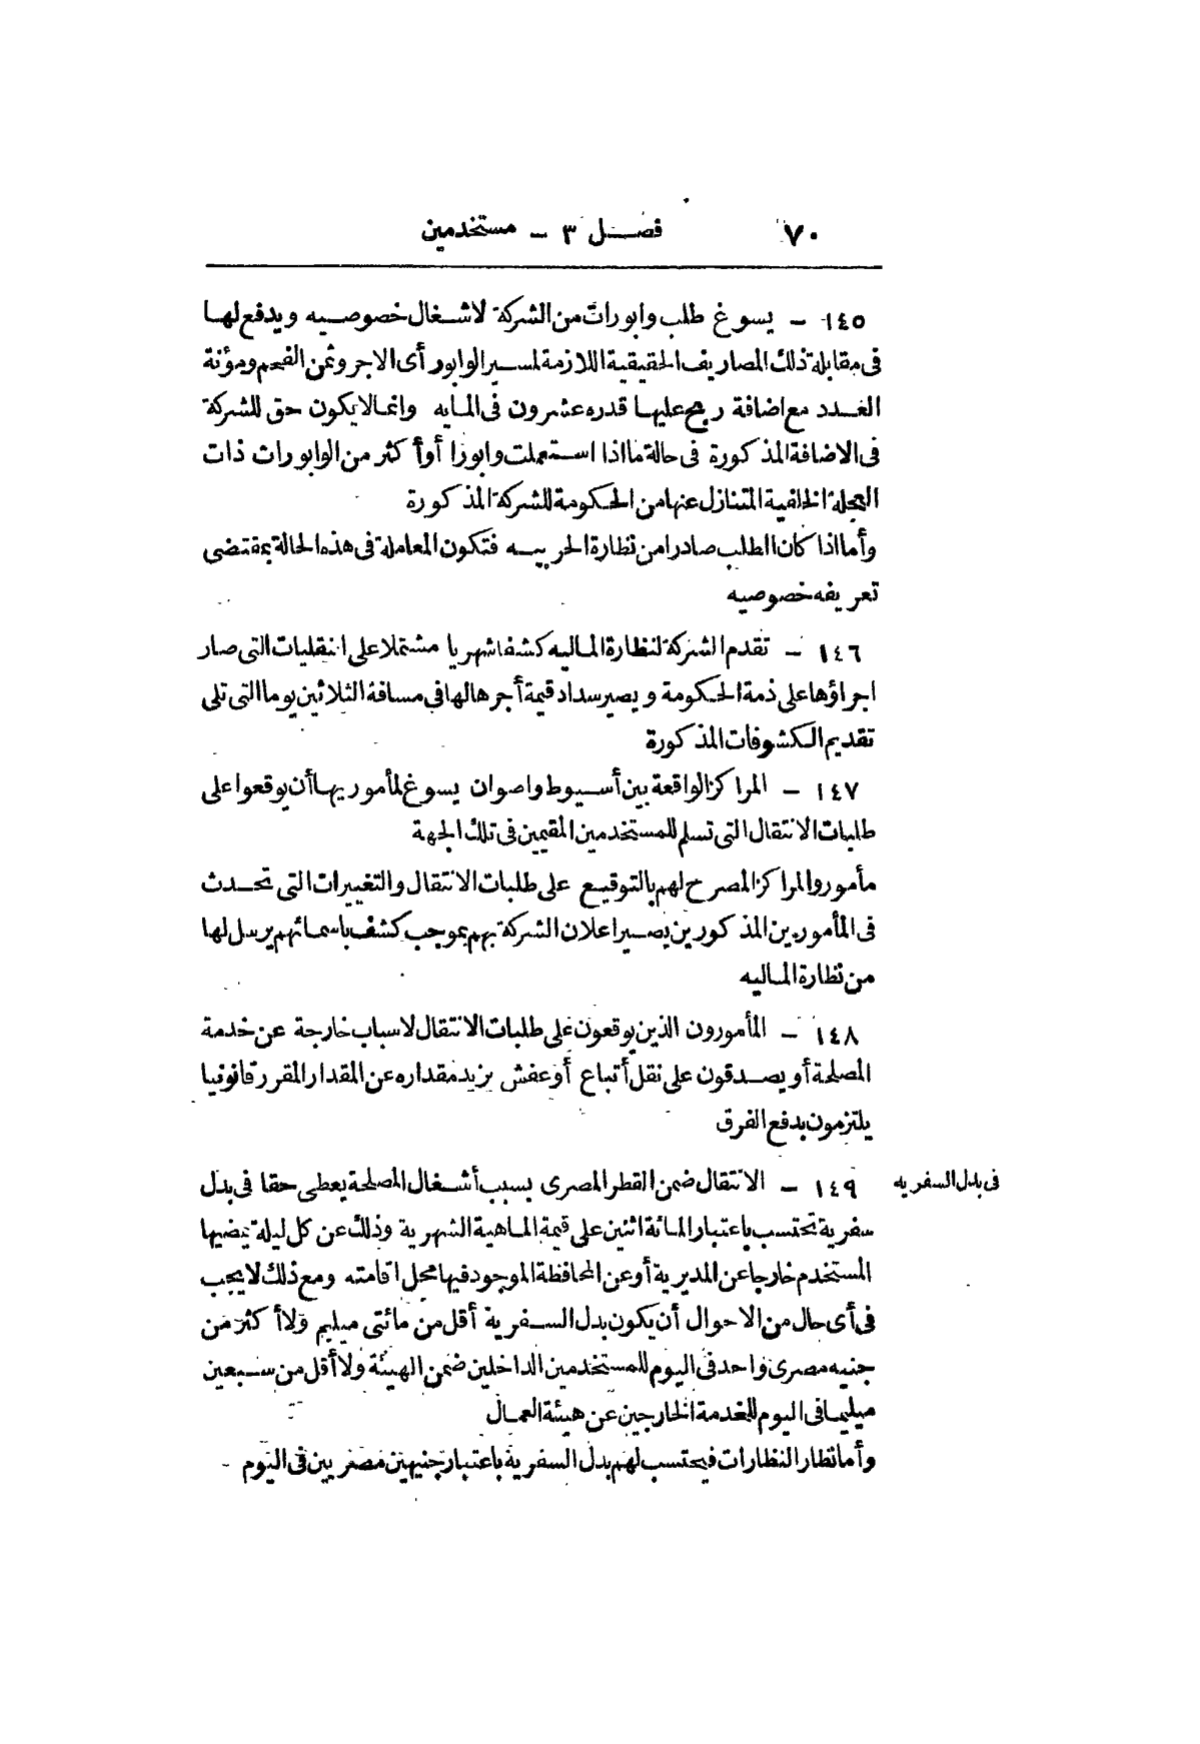 ٧٠ فصل ٣ - مستخدمين
١٤٥ - يسوغ طلب وابورات من الشركة لاشغال خصوصيه ويدفع لها
فى مقابلة ذلك المصاريف الحقيقية اللازمة لمسير الوابور أى الاجر وثمن الفحم ومؤنة
العدد مع اضافة ربح عليها قدره عشرون فى المايه وانما لا يكون حق للشركة
فى الاضافة المذكورة فى حالة ما اذا استعملت وابورا أو أكثر من الوابورات ذات
العجلة الخلفية المتنازل عنها من الحكومة للشركة المذكورة
وأما اذا كان الطلب صادرا من نظارة الحربيه فتكون المعاملة فى هذه الحالة بمقتضى
تعريفه خصوصيه
١٤٦ - تقدم الشركة لنظارة الماليه كشفا شهريا مشتملا على النقليات التى صار
اجراؤها على ذمة الحكومة ويصير سداد قيمة أجرها لها فى مسافة الثلاثين يوما التى تلى
تقديم الكشوفات المذكورة
١٤٧ - المراكز الواقعة بين أسيوط واصوان يسوغ لمأموريها أن يوقعوا على
طلبات الانتقال التى تسلم للمستخدمين المقيمين فى تلك الجهة
مأمورو المراكز المصرح لهم بالتوقيع على طلبات الانتقال والتغييرات التى تحدث
فى المأمورين المذكورين يصير اعلان الشركة بهم بموجب كشف باسمائهم يرسل لها
من نظارة الماليه
١٤٨ - المأمورون الذين يوقعون على طلبات الانتقال لاسباب خارجة عن خدمة
المصلحة أو يصدقون على نقل أتباع أو عفش يزيد مقداره عن المقدار المقرر قانونيا
يلتزمون بدفع الفرق
فى بدل السفريه
١٤٩ - الانتقال ضمن القطر المصرى بسبب أشغال المصلحة يعطى حقا فى بدل
سفرية تحتسب باعتبار المائة اثنين على قيمة الماهية الشهرية وذلك عن كل ليلة يمضيها
المستخدم خارجا عن المديرية أو عن المحافظة الموجود فيها محل اقامته ومع ذلك لا يجب
فى أى حال من الاحوال أن يكون بدل السفرية أقل من مائتى ميليم ولا أكثر من
جنيه مصرى واحد فى اليوم للمستخدمين الداخلين ضمن الهيئة ولا أقل من سبعين
ميليما فى اليوم للخدمة الخارجين عن هيئة العمال
وأما نظار النظارات فيحتسب لهم بدل السفرية باعتبار جنيهين مصريين فى اليوم